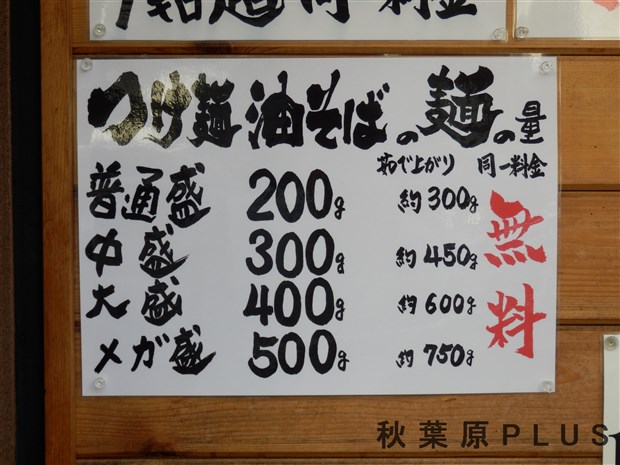 同一料金
つけ麺 油そばの麺の量
茹で上がり 同一料金
普通盛 200g 約300g
中盛 300g 約450g
大盛 400g 約600g
メガ盛 500g 約750g
無料
秋葉原PLUS